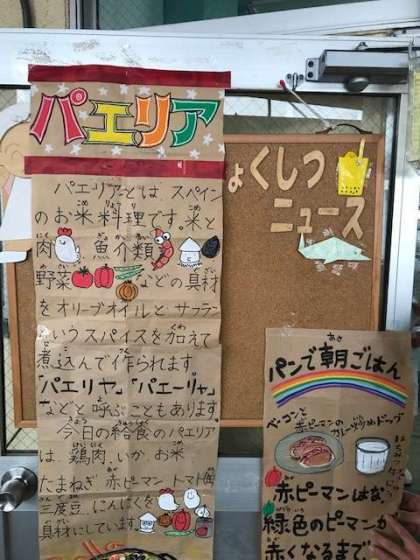 パエリア
パエリアとは スペイン
のお米料理です。米と
肉 魚介類
野菜 などの具材
をオリーブオイルと サフラン
というスパイスを加えて
煮込んで作られます。
「パエリヤ」「パエーリャ」
などと呼ぶこともあります。
今日の給食のパエリア
は、鶏肉 いか お米
たまねぎ 赤ピーマン トマト缶
三度豆 にんにくを
具材にしています。
ょくしつ
ニュース
パンで朝ごはん
ベーコンと
赤ピーマンの
カレーいためドッグ
赤ピーマンはな
緑色のピーマンが
赤くなるまで